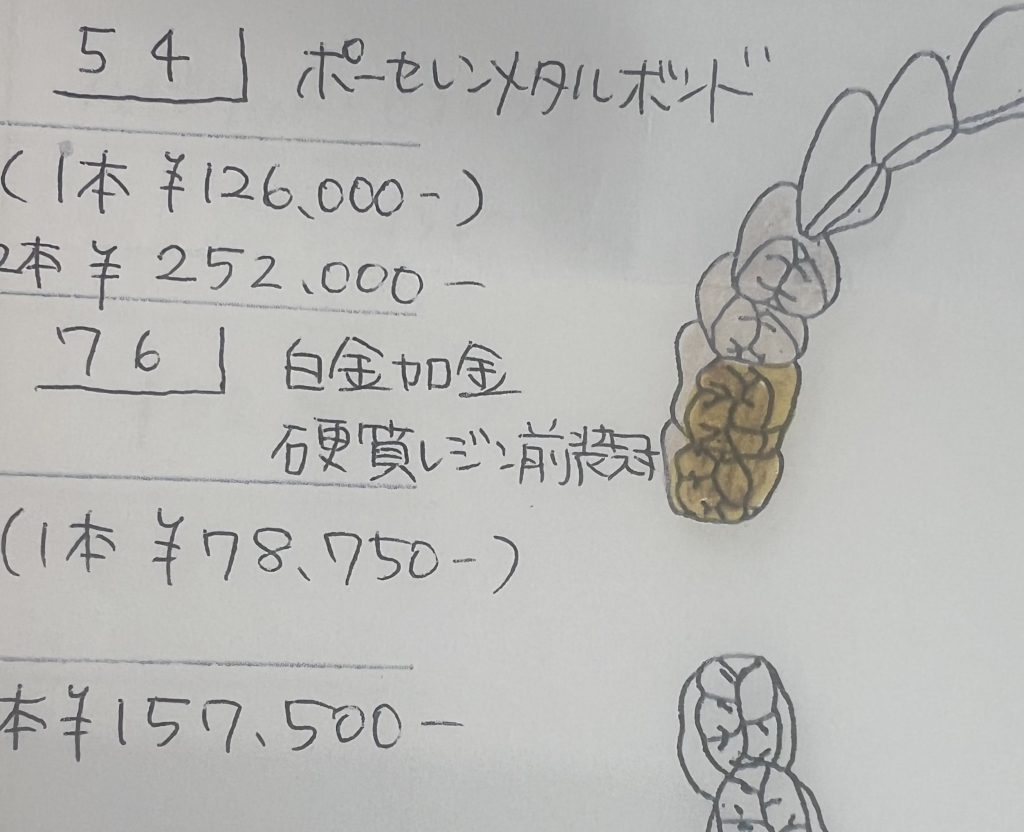 5 4 ポーセレンメタルボンド
(1本 ¥126,000-)
2本 ¥ 252,000-
7 6 白金加金
硬質レジン前装冠
(1本 ¥78,750-)
本 ¥157,500-